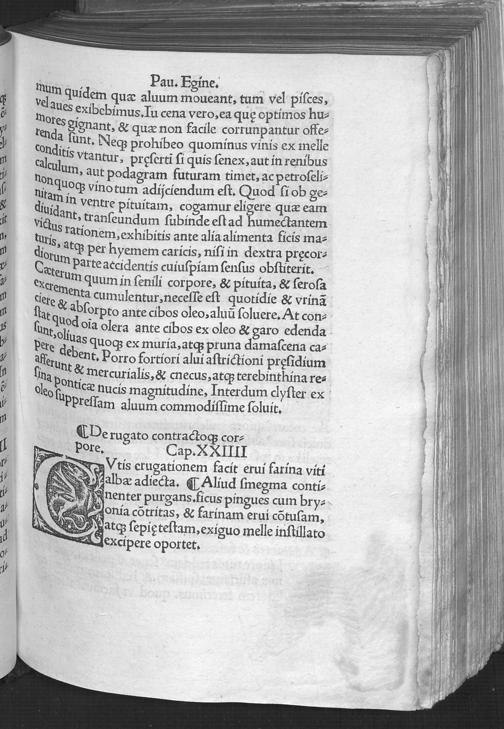 Pau. Egine.
mum quidem quæ aluum moueant, tum vel pisces,
vel aues exibebimus. In cena vero, ea quę optimos hu-
mores gignant, & quæ non facile corrunpantur offe-
renda sunt. Neqꝫ prohibeo quominus vinis ex melle
conditis vtantur, pręserti si quis senex, aut in renibus
calculum, aut podagram futuram timet, ac petroseli-
non quoqꝫ vino tum adijciendum est. Quod si ob ge-
nitam in ventre pituitam, cogamur eligere quæ eam
diuidant, transeundum subinde est ad humectantem
victus rationem, exhibitis ante alia alimenta ficis ma-
turis, atqꝫ per hyemem caricis, nisi in dextra pręcor-
diorum parte accidentis cuiuspiam sensus obstiterit.
Cæterum quum in senili corpore, & pituita, & serosa
excrementa cumulentur, necesse est quotidie & vrinā
ciere & absorpto ante cibos oleo, aluū soluere. At con-
stat quod oīa olera ante cibos ex oleo & garo edenda
sunt, oliuas quoqꝫ ex muria, atqꝫ pruna damascena ca-
pere debent. Porro fortiori alui astrictioni pręsidium
afferunt & mercurialis, & cnecus, atqꝫ terebinthina re-
sina ponticæ nucis magnitudine, Interdum clyster ex
oleo suppressam aluum commodissime soluit.
¶ De rugato contractoqꝫ cor-
pore. Cap. XXIIII
CVtis erugationem facit erui farina viti
albæ adiecta. ¶ Aliud smegma conti-
nenter purgans. ficus pingues cum bry-
onia cōtritas, & farinam erui cōtusam,
atqꝫ sepię testam, exiguo melle instillato
excipere oportet.